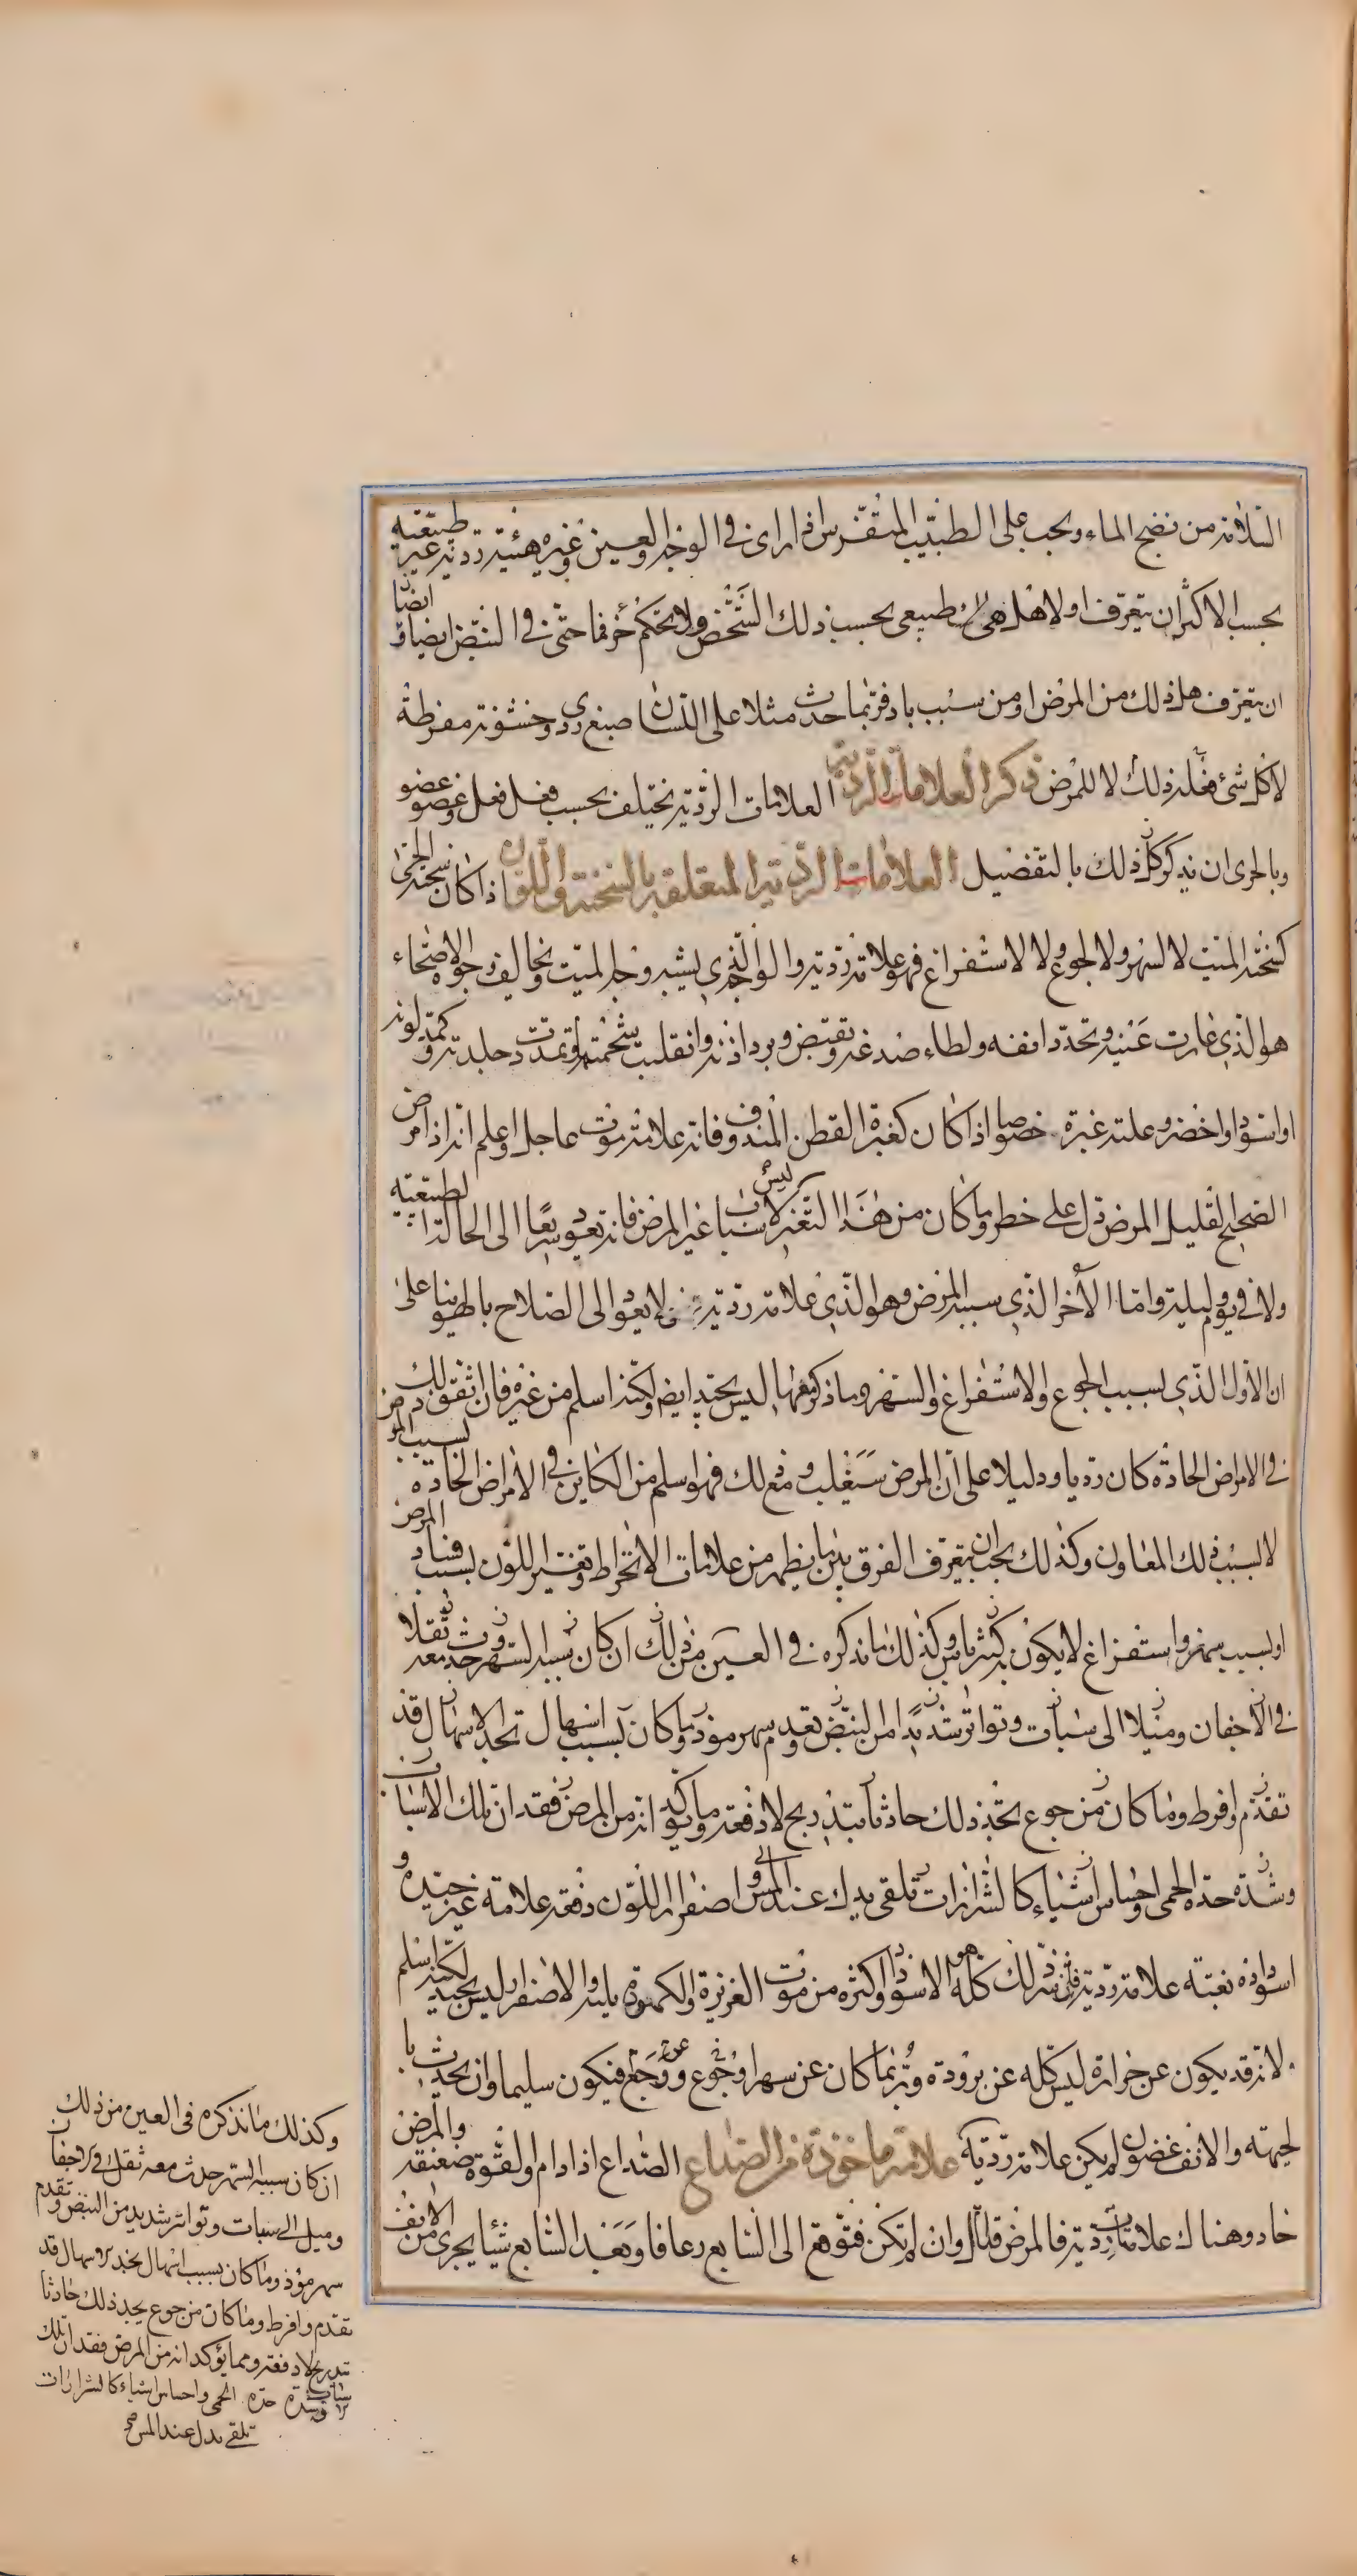 السلامة من نضج الماء ويجب على الطبيب المتفرس اذا راى في الوجه والعين وغيره هيئة ردية غير طبيعية
بحسب الاكثر ان يتعرف اولا هل هي طبيعى بحسب ذلك الشخص ولا يحكم جزما حتى في النبض ايضا و ايضا
ان يتعرف هل ذلك من المرض او من سبب باد فربما حدث مثلا على اللسان صبغ ردى وخشونة مفرطة
لاكل شئ فعله ذلك لا للمرض ذكر العلامات الردية العلامات الردية تختلف بحسب فعل فعل وعضو عضو
وبالحرى ان نذكر كل ذلك بالتفصيل العلامات الردية المتعلقة بالسحنة واللون اذا كان سحنة الحمى
كسحنة الميت لا لسهر ولا لجوع ولا لاستفراغ فهو علامة ردية والوجه الذي يشبه وجه الميت ويخالف وجوه الاصحاء
هو الذي غارت عينيه وتحدد انفه ولطاء صدغه وتقبض وبرد اذنه وانقلبت شحمته وتمددت جلدته وكمد لونه
او اسود او اخضر وعلته غبرة خصوصا اذا كان كغبرة القطن المندوف فانه علامة موت عاجل واعلم انه اذا مرض
الصحيح القليل المرض دل على خطر وما كان من هذا التغير لاسباب غير المرض فانه يعود سريعا الى الحالة الطبيعية
ولا في يوم وليلة واما الاخر الذي سببه المرض وهو الذي علامة ردية فلا يعود الى الصلاح بالهوينا على
ان الاول الذي بسبب الجوع والاستفراغ والسهر وما ذكر معها ليس بجيد ايضا ولكنه اسلم من غيره فان اتفق ذلك
في الامراض الحادة كان رديا ودليلا على ان المرض سيغلب ومع ذلك فهو اسلم من الكاين في الامراض الحادة بسبب المرض
لا لسبب ذلك المعاون وكذلك يجب ان يتعرف الفرق بين ما يظهر من علامات الانخراط وتغير اللون بسبب فساد المرض
او بسبب سهر واستفراغ لا يكون به كثير باس وكذلك ما نذكره في العين من ذلك ان كان سببه السهر حدث معه ثقلا
في الاجفان وميلا الى سبات وتواتر شديدا من النبض وتقدم سهر موذ وما كان بسبب اسهال تجد الاسهال قد
تقدم وافرط وما كان من جوع تجد ذلك حادثا بتدريج لا دفعة وما يوكد انه من المرض فقدان تلك الاسباب
وشدة حدة الحمى واحساس اشياء كالشرارات تلقى يدك عند المس واصفرار اللون دفعة علامة غير جيدة و
اسوداده بغتة علامة ردية فان ذلك كله هو الاسود اكثره من موت الغريزة والكمودة يليه والاصفرار ليس بجيد لكنه اسلم
لانه قد يكون عن حرارة ليس كله عن برودة وربما كان عن سهر او جوع او وجع فيكون سليما وان يحدث با
لجبهة والانف غضون لم يكن علامة ردية علامة ماخوذة من الصداع الصداع اذا دام والقوة ضعيفة والمرض
حاد وهناك علامات ردية فالمرض قتال وان لم تكن فتوقع الى السابع رعافا وبعد السابع شيئا يجرى من الانف
وكذلك ما نذكره في العين من ذلك
ان كان سببه السهر حدث معه ثقل في الاجفان
وميل الى سبات وتواتر شديد من النبض وتقدم
سهر موذ وما كان بسبب اسهال تجد الاسهال قد
تقدم وافرط وما كان من جوع يجد ذلك حادثا
بتدريج لا دفعة ومما يؤكد انه من المرض فقدان تلك
الاسباب وشدة حدة الحمى واحساس اشياء كالشرارات
تلقى يدك عند المس صح